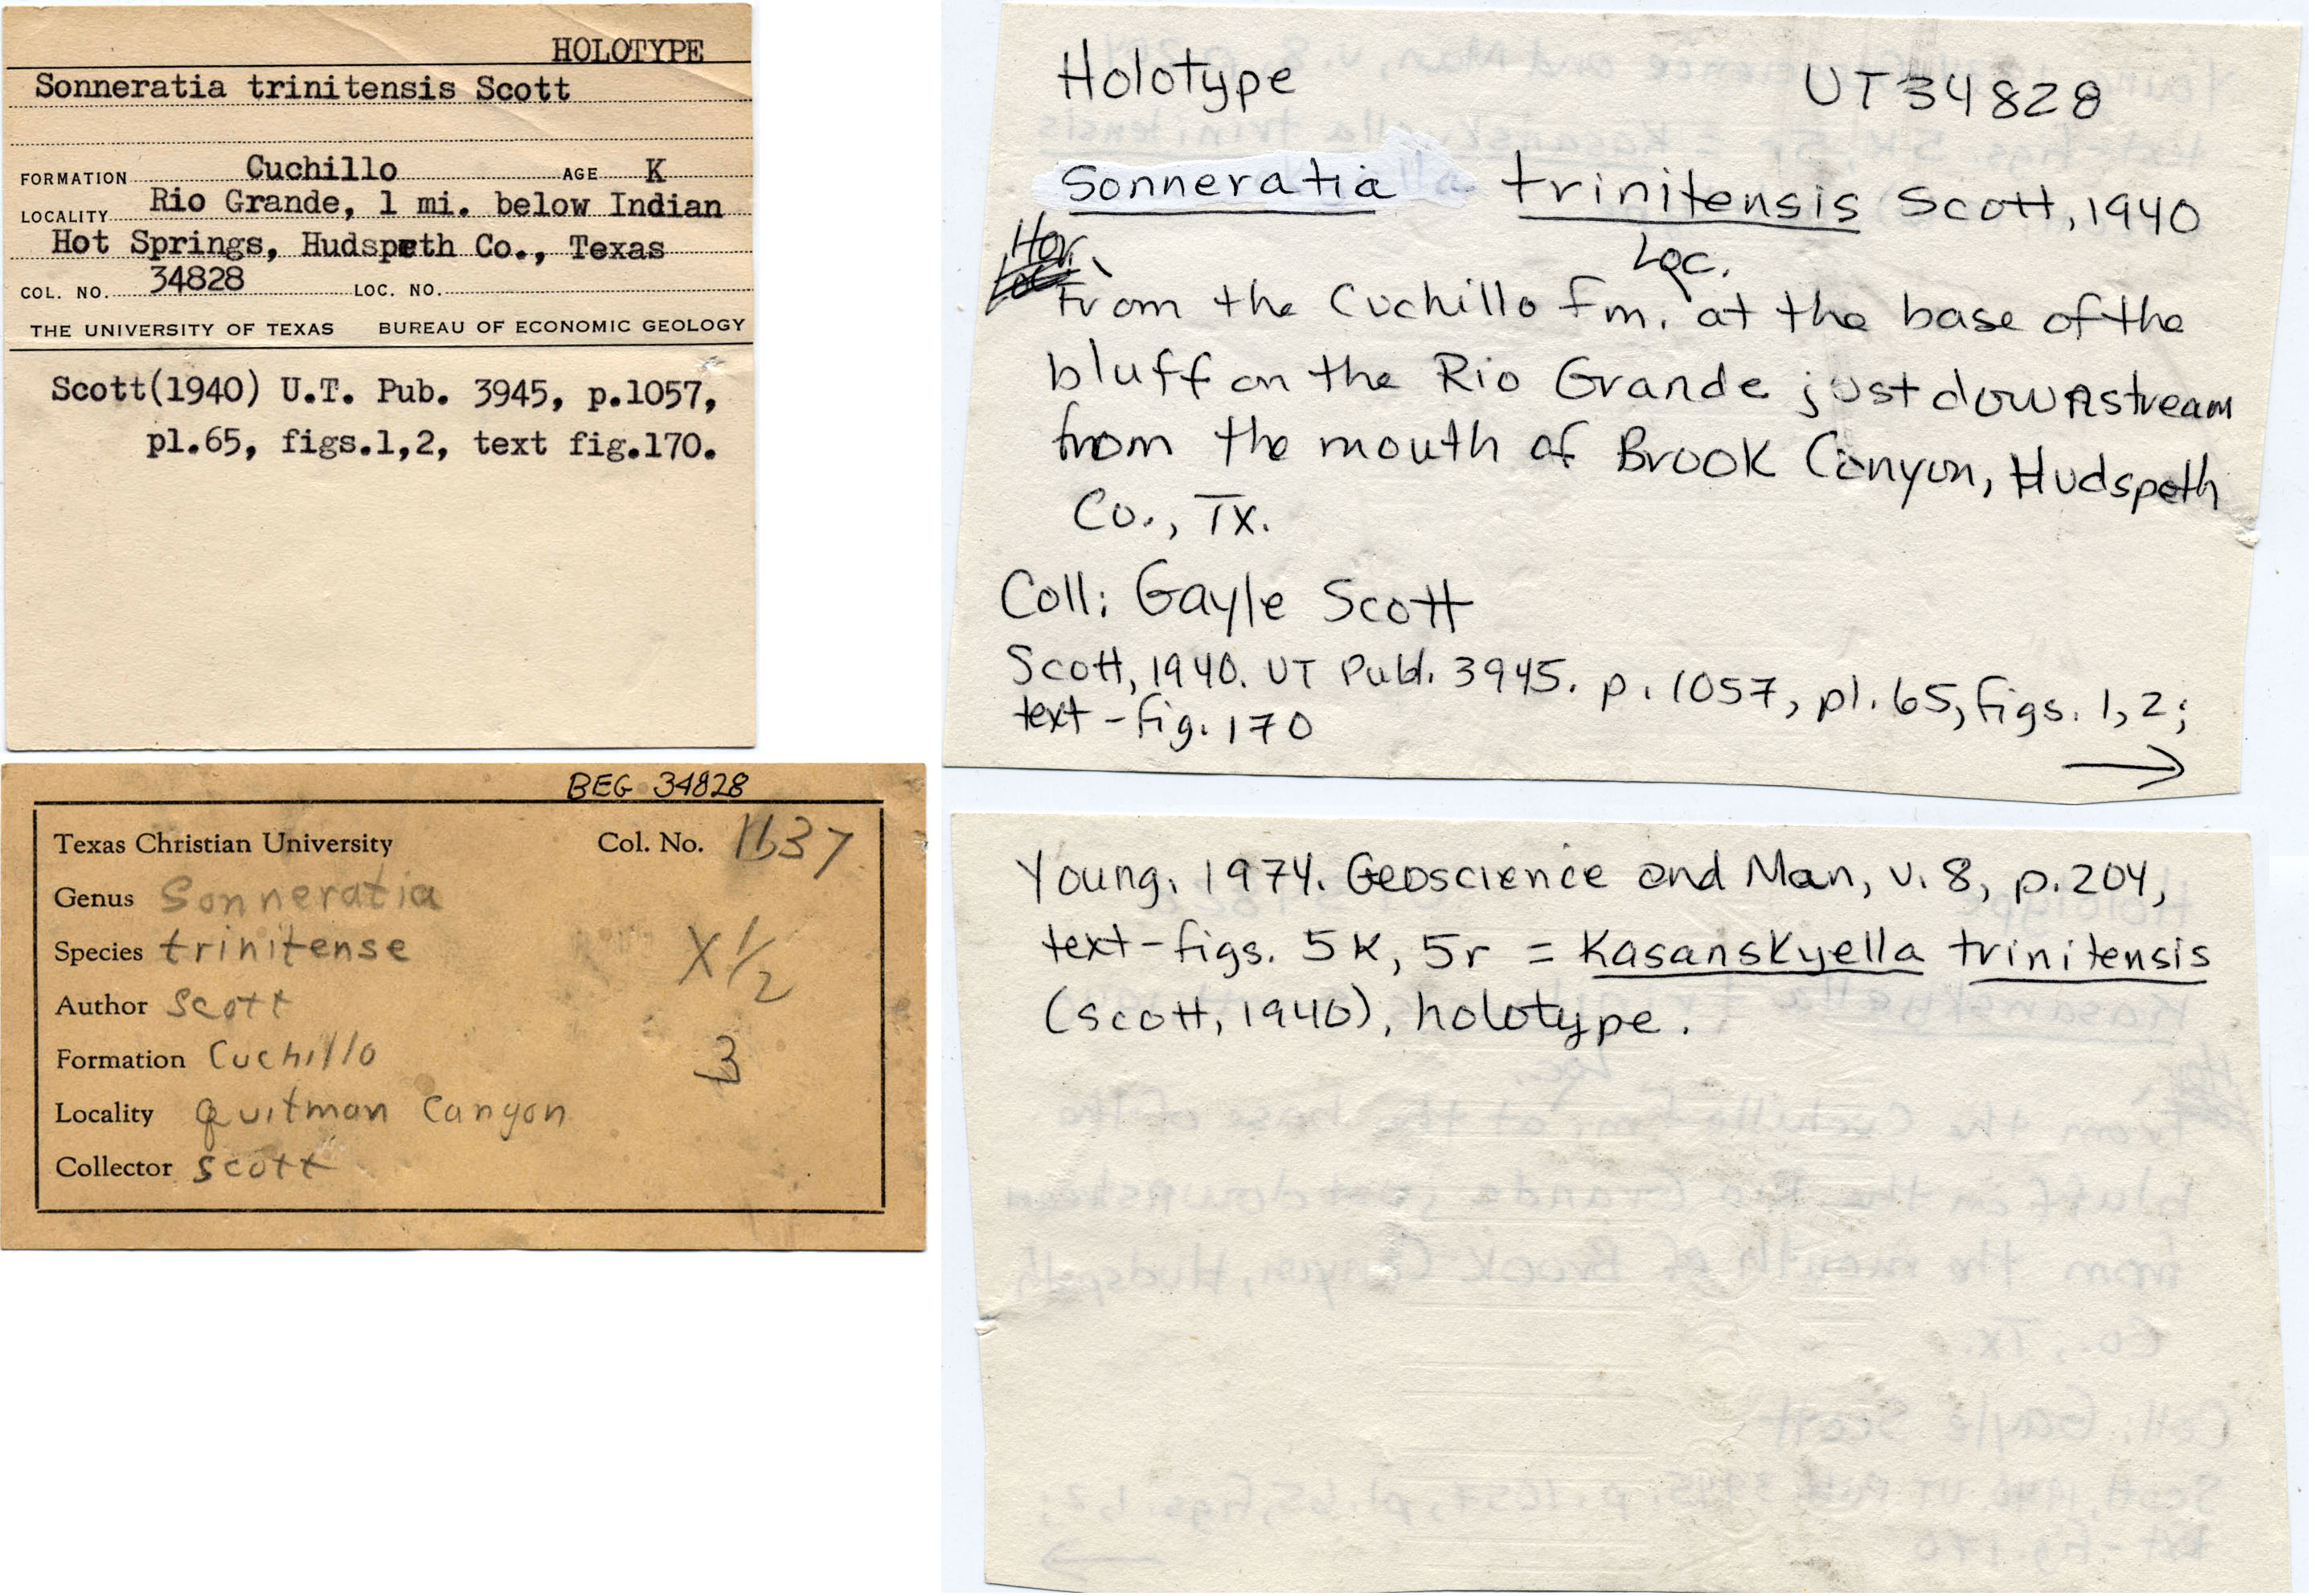 HOLOTYPE
Sonneratia trinitensis Scott
FORMATION Cuchillo AGE K
LOCALITY Rio Grande, 1 mi. below Indian
Hot Springs, Hudspeth Co., Texas
COL. NO. 34828 LOC. NO.
THE UNIVERSITY OF TEXAS BUREAU OF ECONOMIC GEOLOGY
Scott(1940) U.T. Pub. 3945, p.1057,
pl.65, figs.1,2, text fig.170.
BEG 34828
Texas Christian University Col. No. 1637
Genus Sonneratia
Species trinitense
X 1/2
Author Scott
Formation Cuchillo
3
Locality Quitman Canyon
Collector Scott
Holotype UT34828
Sonneratia trinitensis Scott, 1940
Hor. Loc.
From the Cuchillo fm. at the base of the
bluff on the Rio Grande just downstream
from the mouth of Brook Canyon, Hudspeth
Co., Tx.
Coll: Gayle Scott
Scott, 1940. UT Publ. 3945. p. 1057, pl. 65, figs. 1, 2;
text-fig. 170
→
Young, 1974. Geoscience and Man, v. 8, p. 204,
text-figs. 5k, 5r = Kasanskyella trinitensis
(Scott, 1940), holotype.